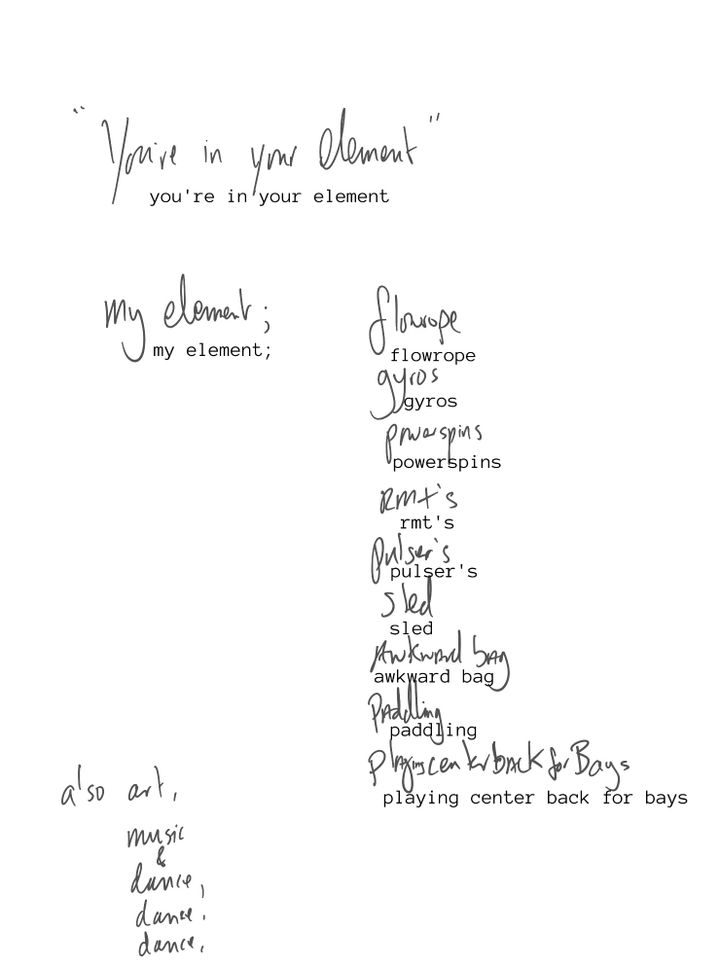 "You're in your element"
you're in your element
my element;
my element;
flowrope
flowrope
gyros
gyros
powerspins
powerspins
RMT's
rmt's
pulser's
pulser's
sled
sled
Awkward bag
awkward bag
Paddling
paddling
Playing center back for Bays
playing center back for bays
also art,
music
&
dance,
dance.
dance.